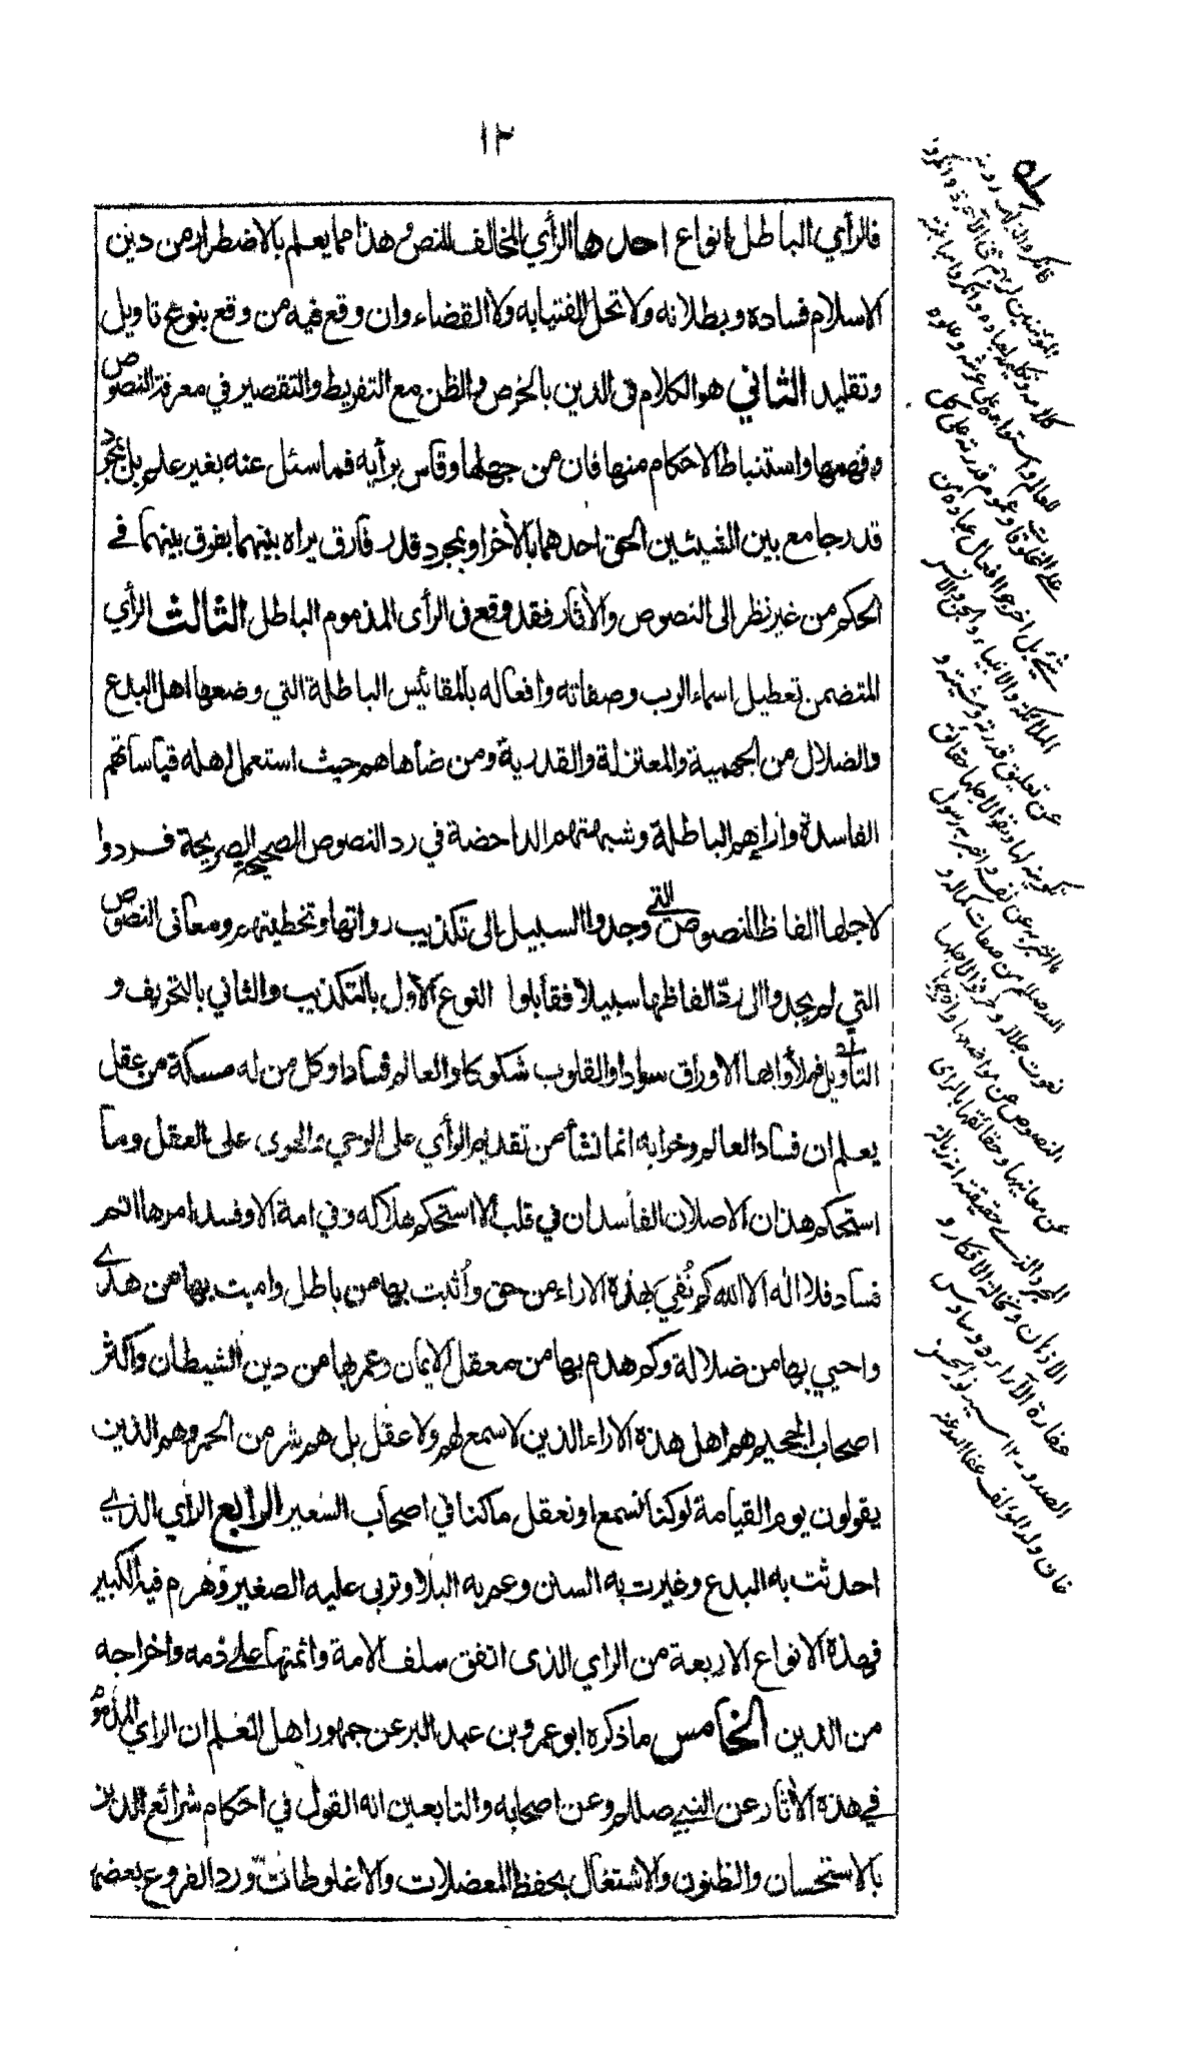 ١٢
فالرأي الباطل انواع احدها الرأي المخالف للنص وهذا مما يعلم بالاضطرار من دين
الاسلام فساده وبطلانه ولا تحل الفتيا به ولا القضاء وان وقع فيه من وقع بنوع تاويل
وتقليد الثاني هو الكلام في الدين بالخرص والظن مع التفريط والتقصير في معرفة النصوص
وفهمها واستنباط الاحكام منها فان من جهلها وقاس برأيه فما سئل عنه بغير علم بل بمجرد
قدر جامع بين الشيئين الحق احدهما بالأخر او بمجرد قدر فارق يراه بينهما يفرق بينهما في
الحكم من غير نظر الى النصوص والأثار فقد وقع في الرأى المذموم الباطل الثالث الرأي
المتضمن تعطيل اسماء الرب وصفاته وافعاله بالمقائيس الباطلة التي وضعها اهل البدع
والضلال من الجهمية والمعتزلة والقدرية ومن ضاهاهم حيث استعمل اهله قياساتهم
الفاسدة وأرائهم الباطلة وشبهتهم الداحضة في رد النصوص الصحيحة الصريحة فردوا
لاجلها الفاظ النصوص التي وجدوا السبيل الى تكذيب رواتها وتخطيتهم ومعانى النصوص
التي لم يجدوا الى ردّ الفاظها سبيلا فقابلوا النوع الأول بالتكذيب والثاني بالتحريف و
التأويل فملأوا بها الاوراق سوادا والقلوب شكوكا والعالم فسادا وكل من له مسكة من عقل
يعلم ان فساد العالم وخرابه انما نشأ من تقديم الرأي على الوحي والهوى على العقل وما
استحكم هذان الاصلان الفاسدان في قلب الا استحكم هلاكه وفي امة الا وفسد امرها اتم
فساد فلا اله الا الله كم نُفِيَ بهذه الاراء من حق وأُثبت بها من باطل واميت بها من هدى
واحيي بها من ضلالة وكم هدم بها من معقل الايمان وعمر بها من دين الشيطان واكثر
اصحاب الجحيم هم اهل هذه الاراء الذين لا سمع لهم ولا عقل بل هم شر من الحمر وهم الذين
يقولون يوم القيامة لو كنا نسمع او نعقل ما كنا في اصحاب السعير الرابع الرأي الذي
احدثت به البدع وغيرت به السنن وعم به البلاء وتربى عليه الصغير وهرم فيه الكبير
فهذه الانواع الاربعة من الراي الذى اتفق سلف الامة وائمتها على ذمه واخراجه
من الدين الخامس ما ذكره ابو عمرو بن عبد البر عن جمهور اهل العلم ان الراي المذموم
في هذه الأثار عن النبي صللم وعن اصحابه والتابعين انه القول في احكام شرائع الدين
بالاستحسان والظنون والاشتغال بحفظ المعضلات والاغلوطات ورد الفروع بعضها
المؤمنين لربهم في الآخرة وانكروا
كلامه وتكليمه لعباده وانكروا مباينته
للعالم واستواءه على عرشه وعلوه
على المخلوقات وعموم قدرته على كل
شئ بل اخرجوا افعال عباده من
الملائكة والانبياء والجن والانس
عن تعليق قدرته ومشيته و
تكوينه لها ونفوا لاجلها حقائق
ما اخبر به عن نفسه واخبر به رسول
الله صللم من صفات كماله و
نعوت جلاله وحرفوا لاجلها
النصوص عن مواضعها واخرجوها
عن معانيها وحقائقها بالراى
المجرد الذي حقيقته انه زبالة
الاذهان ونخالة الافكار و
عفارة الآراء ووساوس
الصدور ١٢ سيد نور الحسن
خان ولد المؤلف عفا الله عنه